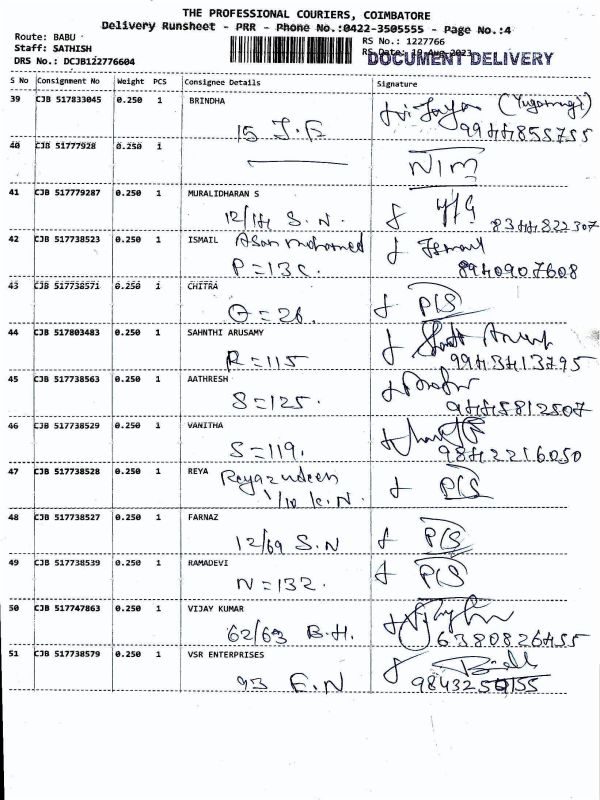 THE PROFESSIONAL COURIERS, COIMBATORE
Delivery Runsheet - PRR - Phone No.:0422-3505555 - Page No.:4
Route: BABU
Staff: SATHISH
DRS No.: DCJB122776604
RS No.: 1227766
RS Date: 19 Aug 2023
DOCUMENT DELIVERY
S No Consignment No Weight PCS Consignee Details Signature
39 CJB 517833045 0.250 1 BRINDHA
15 J.E
40 CJB 51777928 0.250 1
41 CJB 517779287 0.250 1 MURALIDHARAN S
12/14 S.N.
8344822307
42 CJB 517738523 0.250 1 ISMAIL Asan Mohamed Ismail
P=13C. 8940907608
43 CJB 517738571 0.250 1 CHITRA
G=26. P/S
44 CJB 517803483 0.250 1 SAHNTHI ARUSAMY
R=115 9943413795
45 CJB 517738563 0.250 1 AATHRESH
S=125. 9445812507
46 CJB 517738529 0.250 1 VANITHA
S=119. 9842216050
47 CJB 517738528 0.250 1 REYA Reyazudeen
1/10 K.N. P/S
48 CJB 517738527 0.250 1 FARNAZ
12/69 S.N P/S
49 CJB 517738539 0.250 1 RAMADEVI
N=132. P/S
50 CJB 517747863 0.250 1 VIJAY KUMAR
62/63 B.H. 6380826455
51 CJB 517738579 0.250 1 VSR ENTERPRISES
93 E.N